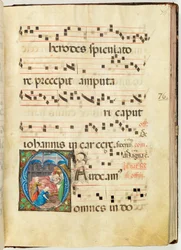 herodes spiculato
re precepit amputa
ri caput
iohannis in carcere. 
Audeam⁹
omnes in do